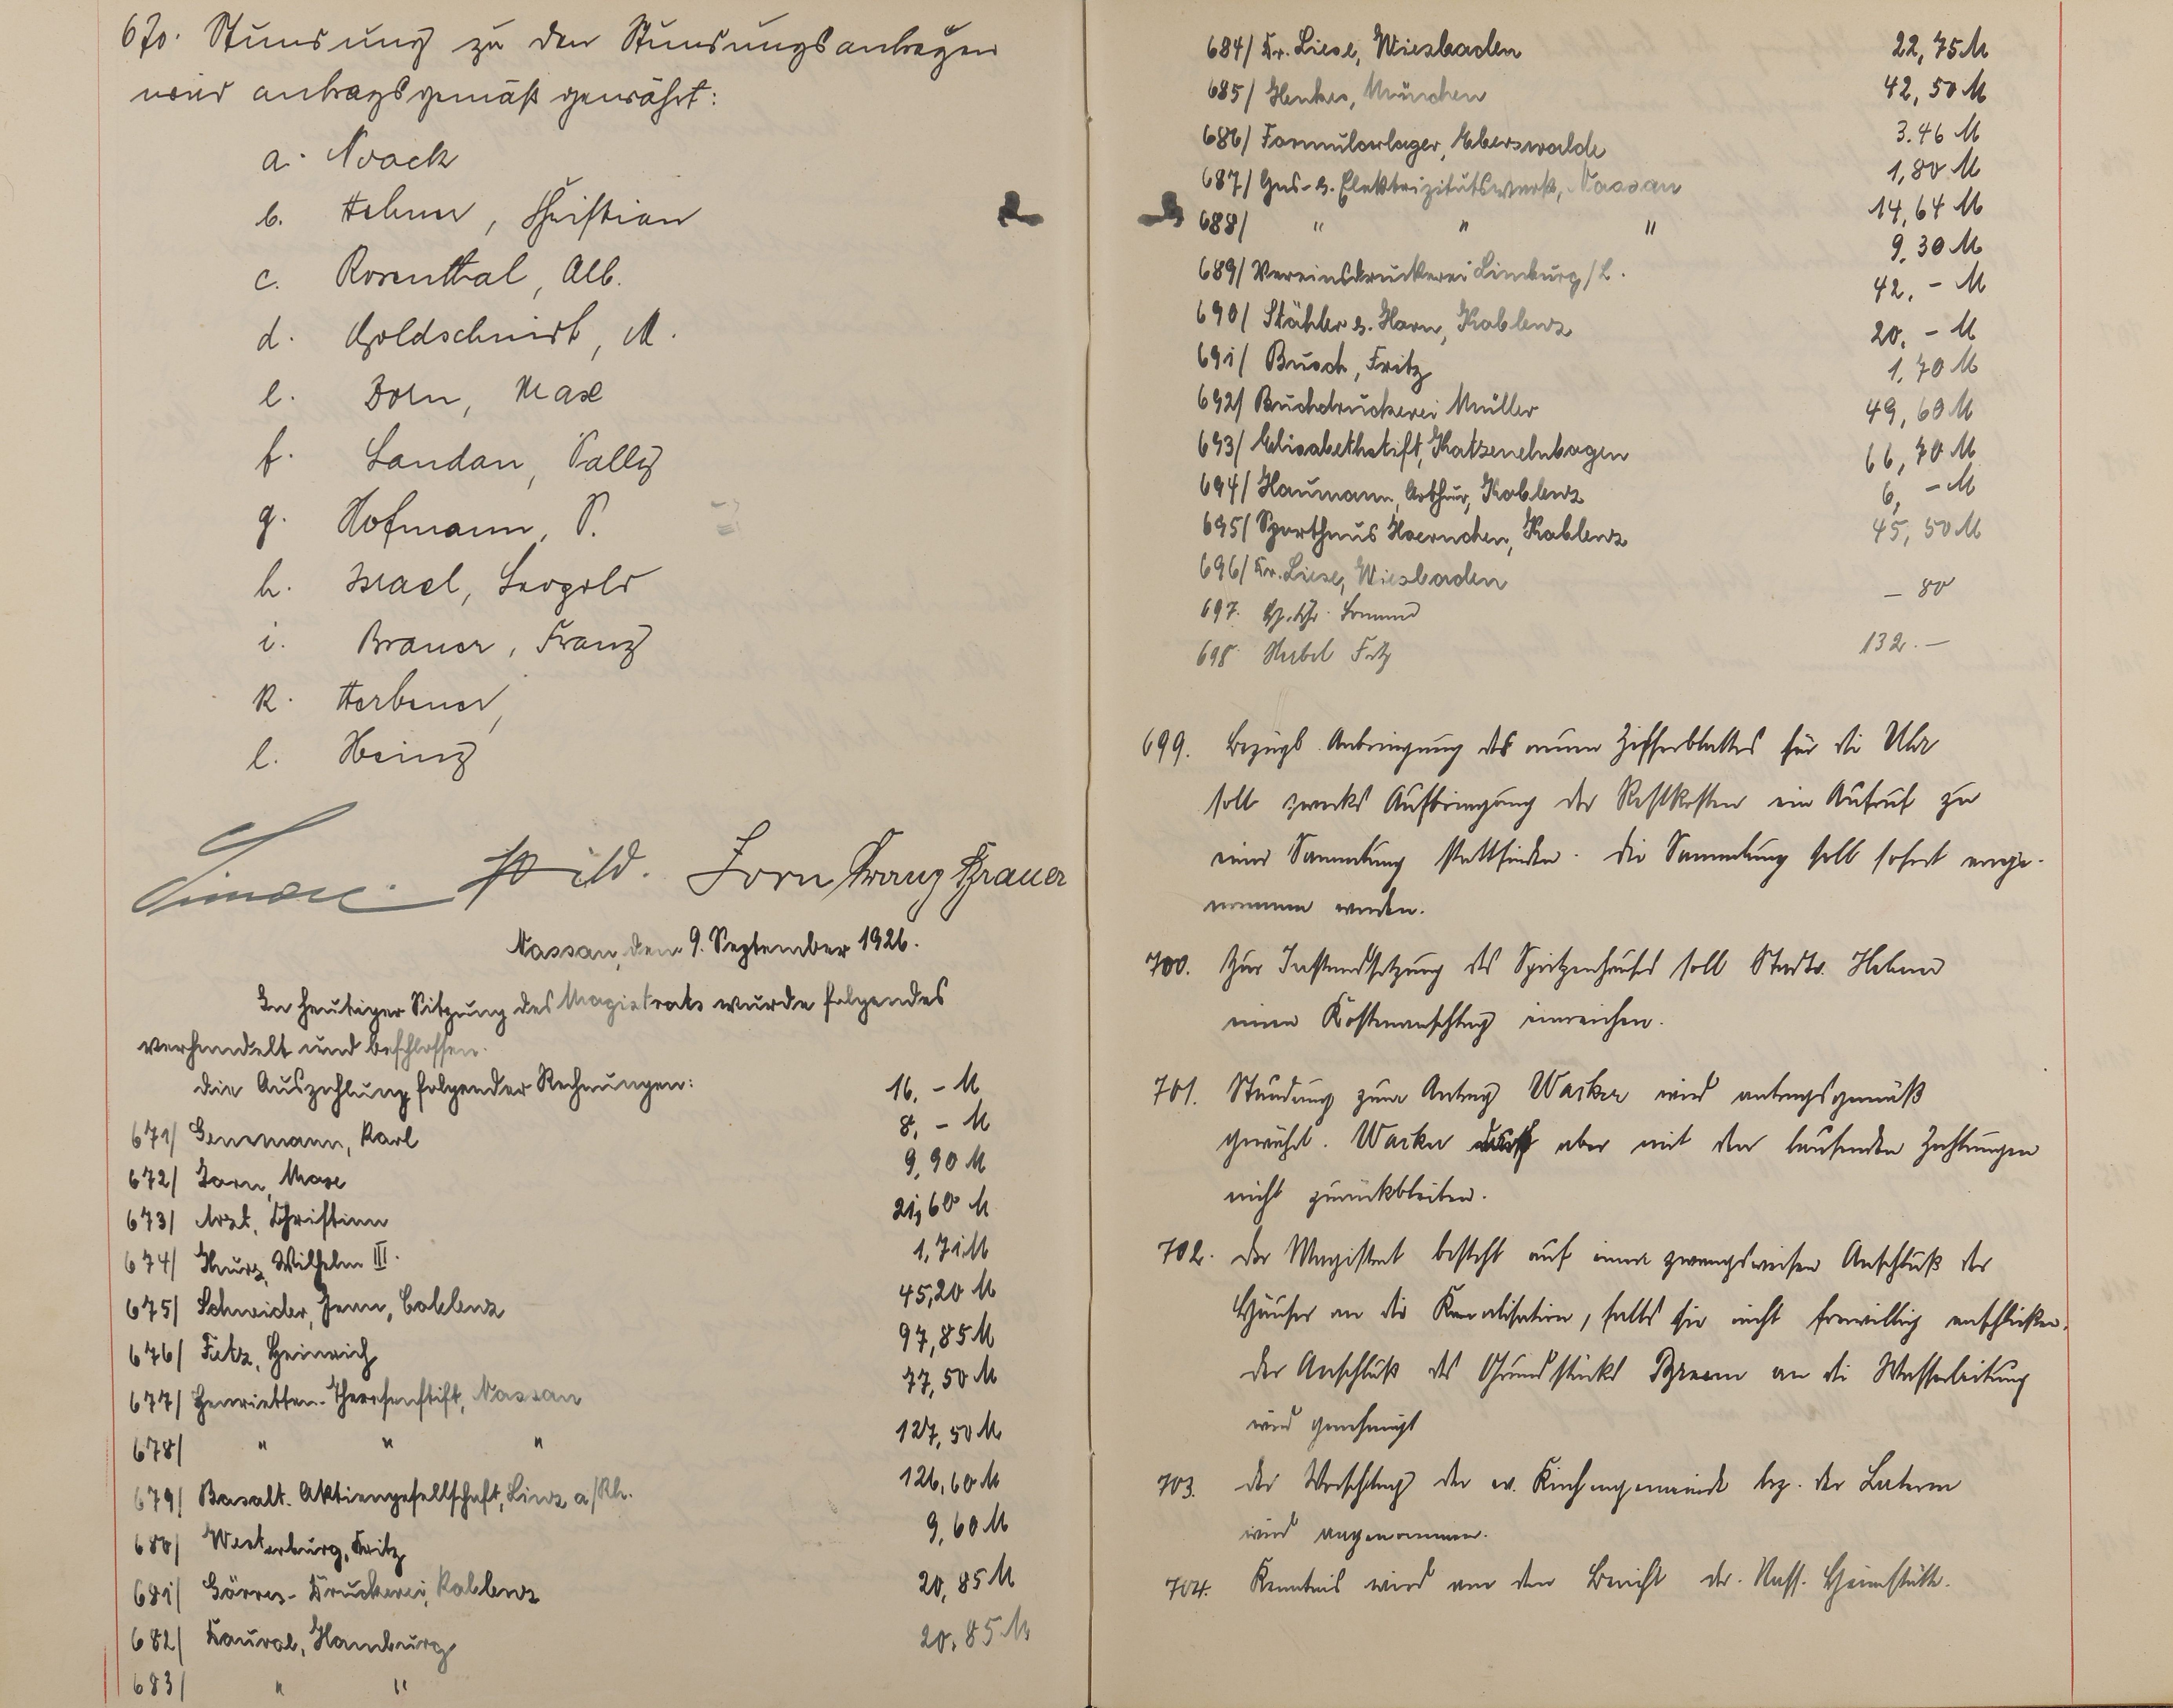 670. Stundung zu den Stundungsanträgen
wird antragsgemäß gewährt:
a. Noack
b. Hehner, Christian
c. Rosenthal, Alb.
d. Goldschmidt, M.
e. Born, Max
f. Landau, Sally
g. Hofmann, P.
h. Israel, Leopold
i. Brauer, Franz
k. Herbener,
l. Heinz
Wild. Zorn Franz Brauer
Nassau, den 9. September 1926.
In heutiger Sitzung des Magistrats wurde folgendes
verhandelt und beschlossen.
die Auszahlung folgender Rechnungen:
671/ Karl 16,- M
672/ Zorn, Max 8,- M
673/ Arzt, Christian 9,90 M
674/ Kurz, Wilhelm III. 21,60 M
675/ Schneider, Coblenz 1,71 M
676/ Heinrich 45,20 M
677/ Henrietten-Theresenstift, Nassau 97,85 M
678/ " " " 77,50 M
679/ Basalt. Aktiengesellschaft, Linz a/Rh. 127,50 M
680/ Westerburg, Fritz 126,60 M
681/ Görres-Druckerei, Koblenz 9,60 M
682/ Hamburg 20,85 M
683/ " " 20,85 M
684/ Dr. Liese, Wiesbaden 22,75 M
685/ München 42,50 M
686/ Formularlager, Eberswalde 3.46 M
687/ Gas- u. Elektrizitätswerk, Nassau 1,80 M
688/ " " " 14,64 M
689/ Vereinsdruckerei Limburg/L. 9,30 M
690/ Stähler u. Horn, Koblenz 42,- M
691/ Busch, Fritz 20,- M
692/ Buchdruckerei Müller 1,70 M
693/ Elisabethstift, Katzenelnbogen 49,60 M
694/ Haumann, Arthur, Koblenz 66,70 M
695/ Sporthaus Hoernchen, Koblenz 6,- M
696/ Dr. Liese, Wiesbaden 45,50 M
697. - 80
698. Fritz 132.-
699. Bezügl. Anbringung des neuen Zifferblattes für die Uhr
soll zwecks Aufbringung der Restkosten ein Aufruf zu
einer Sammlung stattfinden. Die Sammlung soll sofort vorge-
nommen werden.
700. Zur Instandsetzung des Spritzenhauses soll Stadtv. Hehner
einen Kostenanschlag einreichen.
701. Stundung zum Antrag Wacker wird antragsgemäß
gewährt. Wacker darf aber mit den laufenden Zahlungen
nicht zurückbleiben.
702. Der Magistrat besteht auf einen zwangsweisen Anschluß der
Häuser an die Kanalisation, falls sie nicht freiwillig anschließen.
Der Anschluß des Grundstücks an die Wasserleitung
wird genehmigt
703. Der Vorschlag der ev. Kirchengemeinde bez. der Laterne
wird angenommen.
704. Kenntnis wird von dem Bericht der Nass. Heimstätte.